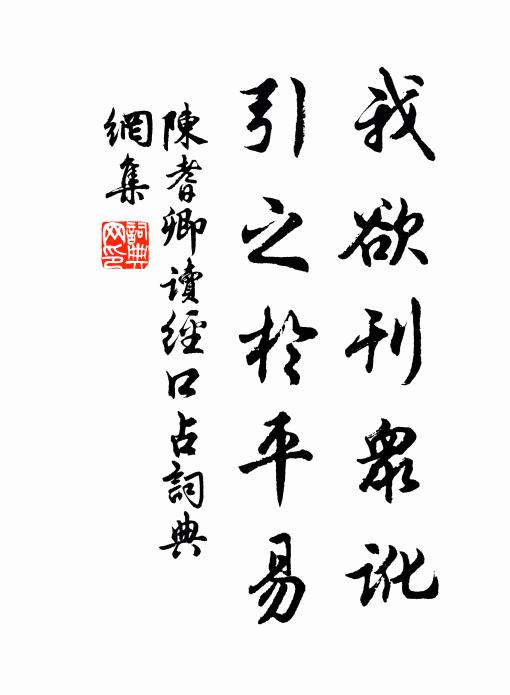 我欲刊眾訛
引之於平易
陳耆卿讀經口占詞典
網集
詞典網印